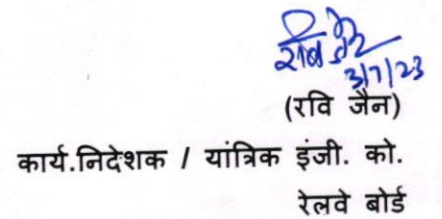 रवि जैन
3/7/23
(रवि जैन)
कार्य.निदेशक / यांत्रिक इंजी. को.
रेलवे बोर्ड